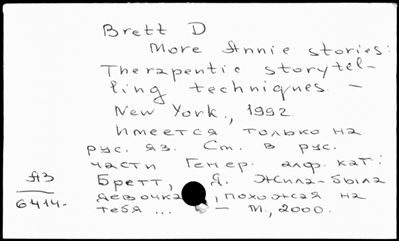 Brett D
More Annie stories:
Therapentic storytel-
ling techniques. -
New York., 1992.
Имеется только на
рус. яз. См. в рус.
части Генер. алф. кат:
Бретт, Д. Жила-была
девочка, похожая на
тебя ... - М., 2000.
ЯЗ
6414-